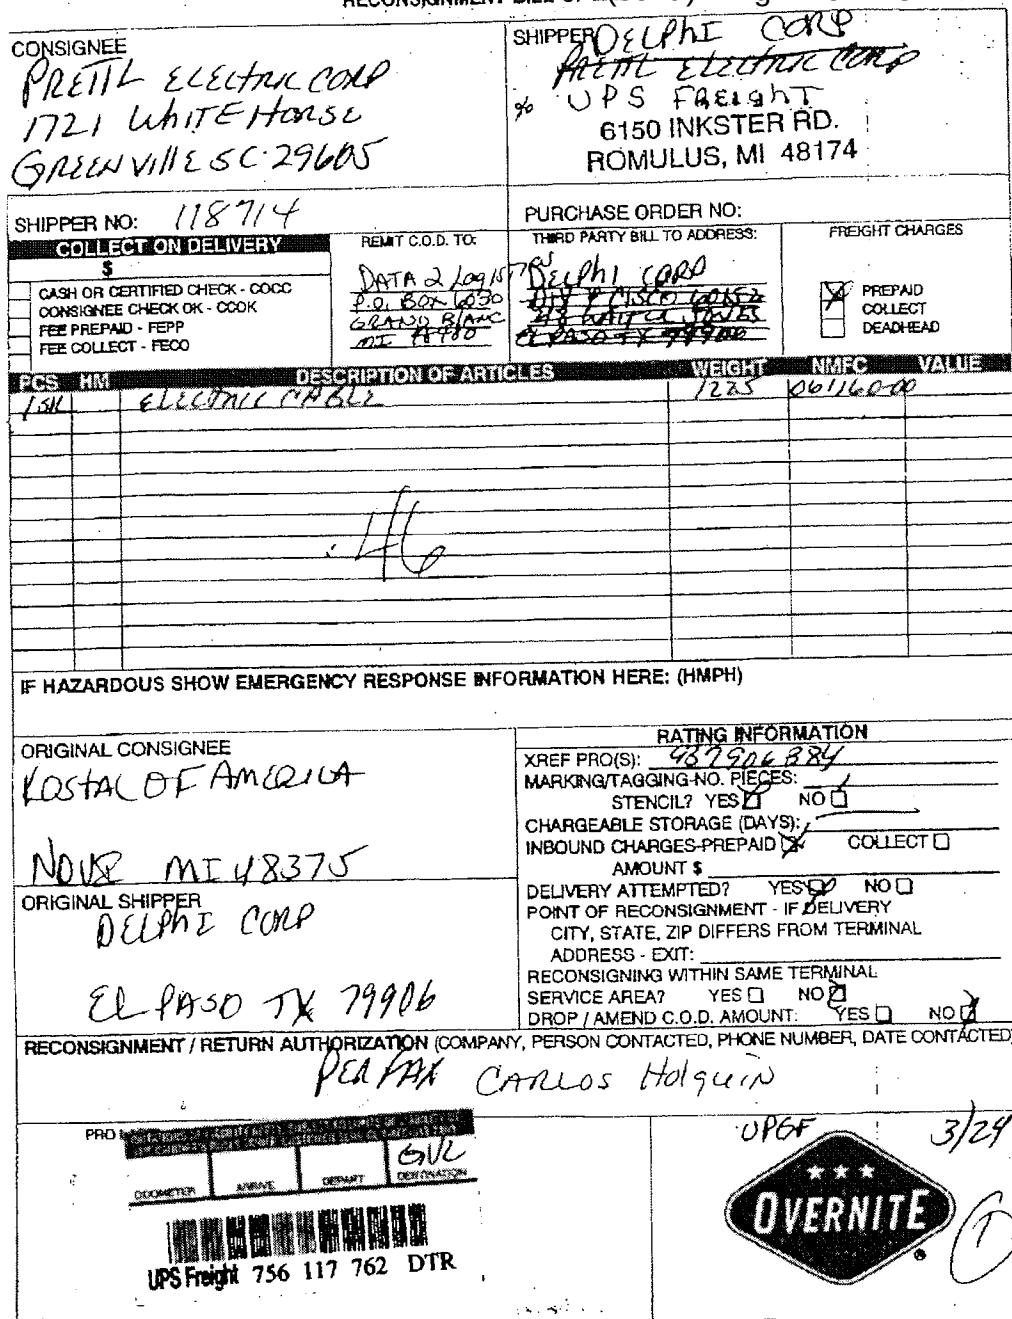 CONSIGNEE
PRETTL ELECTRIC CORP
1721 WHITE HORSE
GREENVILLE SC 29605
SHIPPER
DELPHI CORP
PRETTL ELECTRIC CORP
% UPS FREIGHT
6150 INKSTER RD.
ROMULUS, MI 48174
SHIPPER NO: 118714
PURCHASE ORDER NO:
COLLECT ON DELIVERY
$
CASH OR CERTIFIED CHECK - COCC
CONSIGNEE CHECK OK - CCOK
FEE PREPAID - FEPP
FEE COLLECT - FECO
REMIT C.O.D. TO:
DATA 2 Logistics
P.O. BOX 6030
GRAND BLANC
MI
THIRD PARTY BILL TO ADDRESS:
DELPHI CORP
EL PASO TX
FREIGHT CHARGES
PREPAID
COLLECT
DEADHEAD
PCS HM DESCRIPTION OF ARTICLES WEIGHT NMFC VALUE
1SK ELECTRIC CABLE 1225 061160-00
.46
IF HAZARDOUS SHOW EMERGENCY RESPONSE INFORMATION HERE: (HMPH)
ORIGINAL CONSIGNEE
KOSTAL OF AMERICA
MI 48375
ORIGINAL SHIPPER
DELPHI CORP
EL PASO TX 79906
RATING INFORMATION
XREF PRO(S): 967906384
MARKING/TAGGING-NO. PIECES:
STENCIL? YES NO
CHARGEABLE STORAGE (DAYS):
INBOUND CHARGES-PREPAID COLLECT
AMOUNT $
DELIVERY ATTEMPTED? YES NO
POINT OF RECONSIGNMENT - IF DELIVERY
CITY, STATE, ZIP DIFFERS FROM TERMINAL
ADDRESS - EXIT:
RECONSIGNING WITHIN SAME TERMINAL
SERVICE AREA? YES NO
DROP / AMEND C.O.D. AMOUNT: YES NO
RECONSIGNMENT / RETURN AUTHORIZATION (COMPANY, PERSON CONTACTED, PHONE NUMBER, DATE CONTACTED)
PER FAX CARLOS Holguin
PRO
GVL
ODOMETER ARRIVE DEPART DESTINATION
UPS Freight 756 117 762 DTR
UPGF 3/24
OVERNITE
1